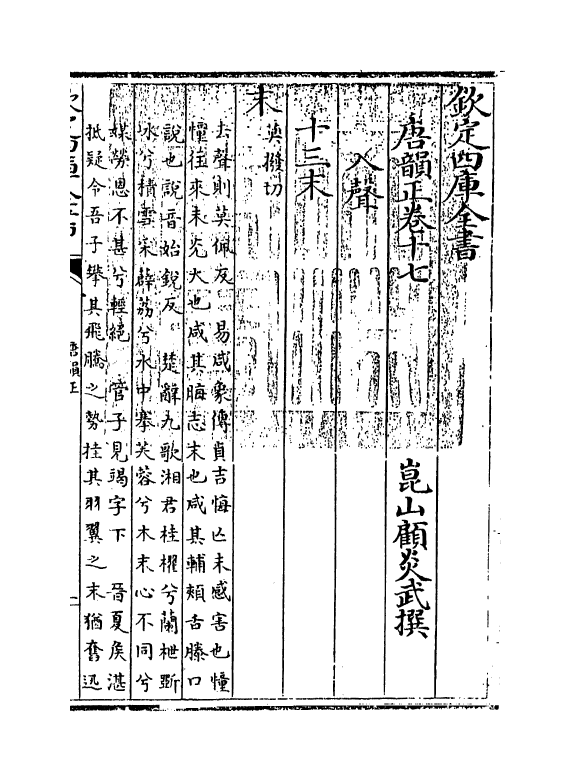 欽定四庫全書
唐韻正卷十七
崑山顧炎武撰
入聲
十三末
末
莫撥切
去聲則莫佩反 易咸象傳貞吉悔亡未感害也憧
憧往來未光大也咸其脢志末也咸其輔頰舌滕口
說也說音始銳反 楚辭九歌湘君桂櫂兮蘭枻斲
冰兮積雪采薜荔兮水中搴芙蓉兮木末心不同兮
媒勞恩不甚兮輕絕 管子見竭字下 晉夏侯湛
抵疑令吾子攀其飛騰之勢挂其羽翼之末猶奮迅
唐韻正